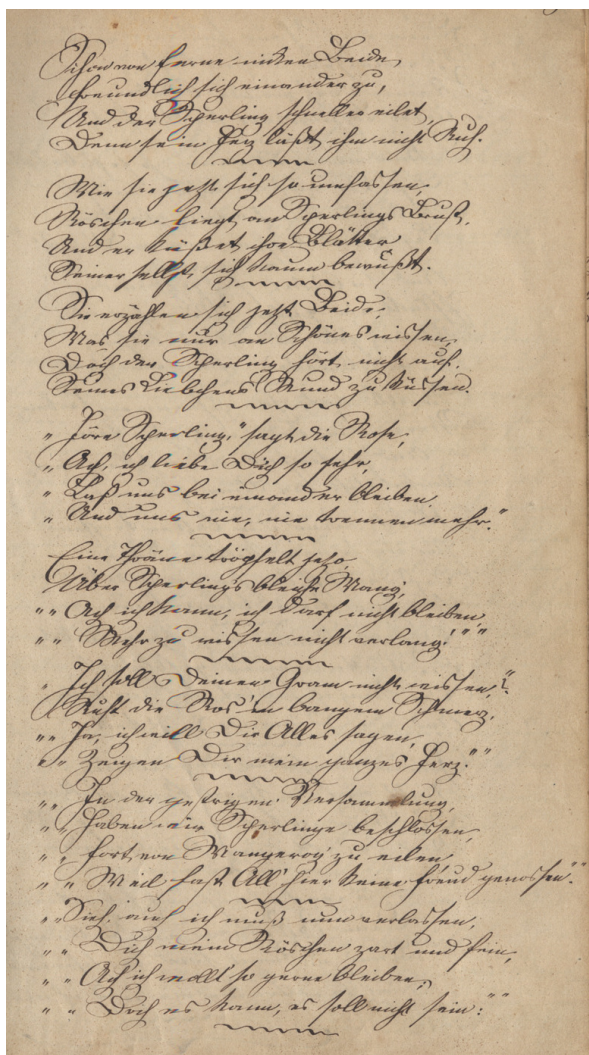 Schon von ferne nicken Beide,
Freundlich sich einander zu,
Und der Sperling schneller eilet,
Denn sein Herz läßt ihm nicht Ruh.
Wie sie jetzt sich so umfassen,
Röschen liegt an Sperlings Brust,
Und er küßet ihre Blätter
Seiner selbst sich kaum bewußt.
Sie erzählen sich jetzt Beide,
Was sie nur an Schönes wissen,
Doch der Sperling hört nicht auf,
Seines Liebchens Mund zu küssen.
„Höre Sperling," sagt die Rose,
„Ach, ich liebe Dich so sehr,
„Laß uns bei einander bleiben,
„Und uns nie, nie trennen mehr."
Eine Thräne tröpfelt jetzo,
Über Sperlings bleiche Wang,
„„Ach ich kann, ich darf nicht bleiben,
„„Mehr zu wissen nicht verlang!""
„Ich soll Deinen Gram nicht wissen,"?
Ruft die Ros' in bangem Schmerz,
„„Ja, ich will Dir Alles sagen,
„„Zeigen Dir mein ganzes Herz.""
„„In der gestrigen Versammlung,
„„Haben wir Sperlinge beschlossen,
„„Fort von Wangerog' zu eilen,
„„Weil fast All' hier keine Freud genossen.""
„„Sieh, auch ich muß nun verlassen,
„„Dich mein Röschen zart und fein,
„„Ach ich wollt so gerne bleiben,
„„Doch es kann, es soll nicht sein:""